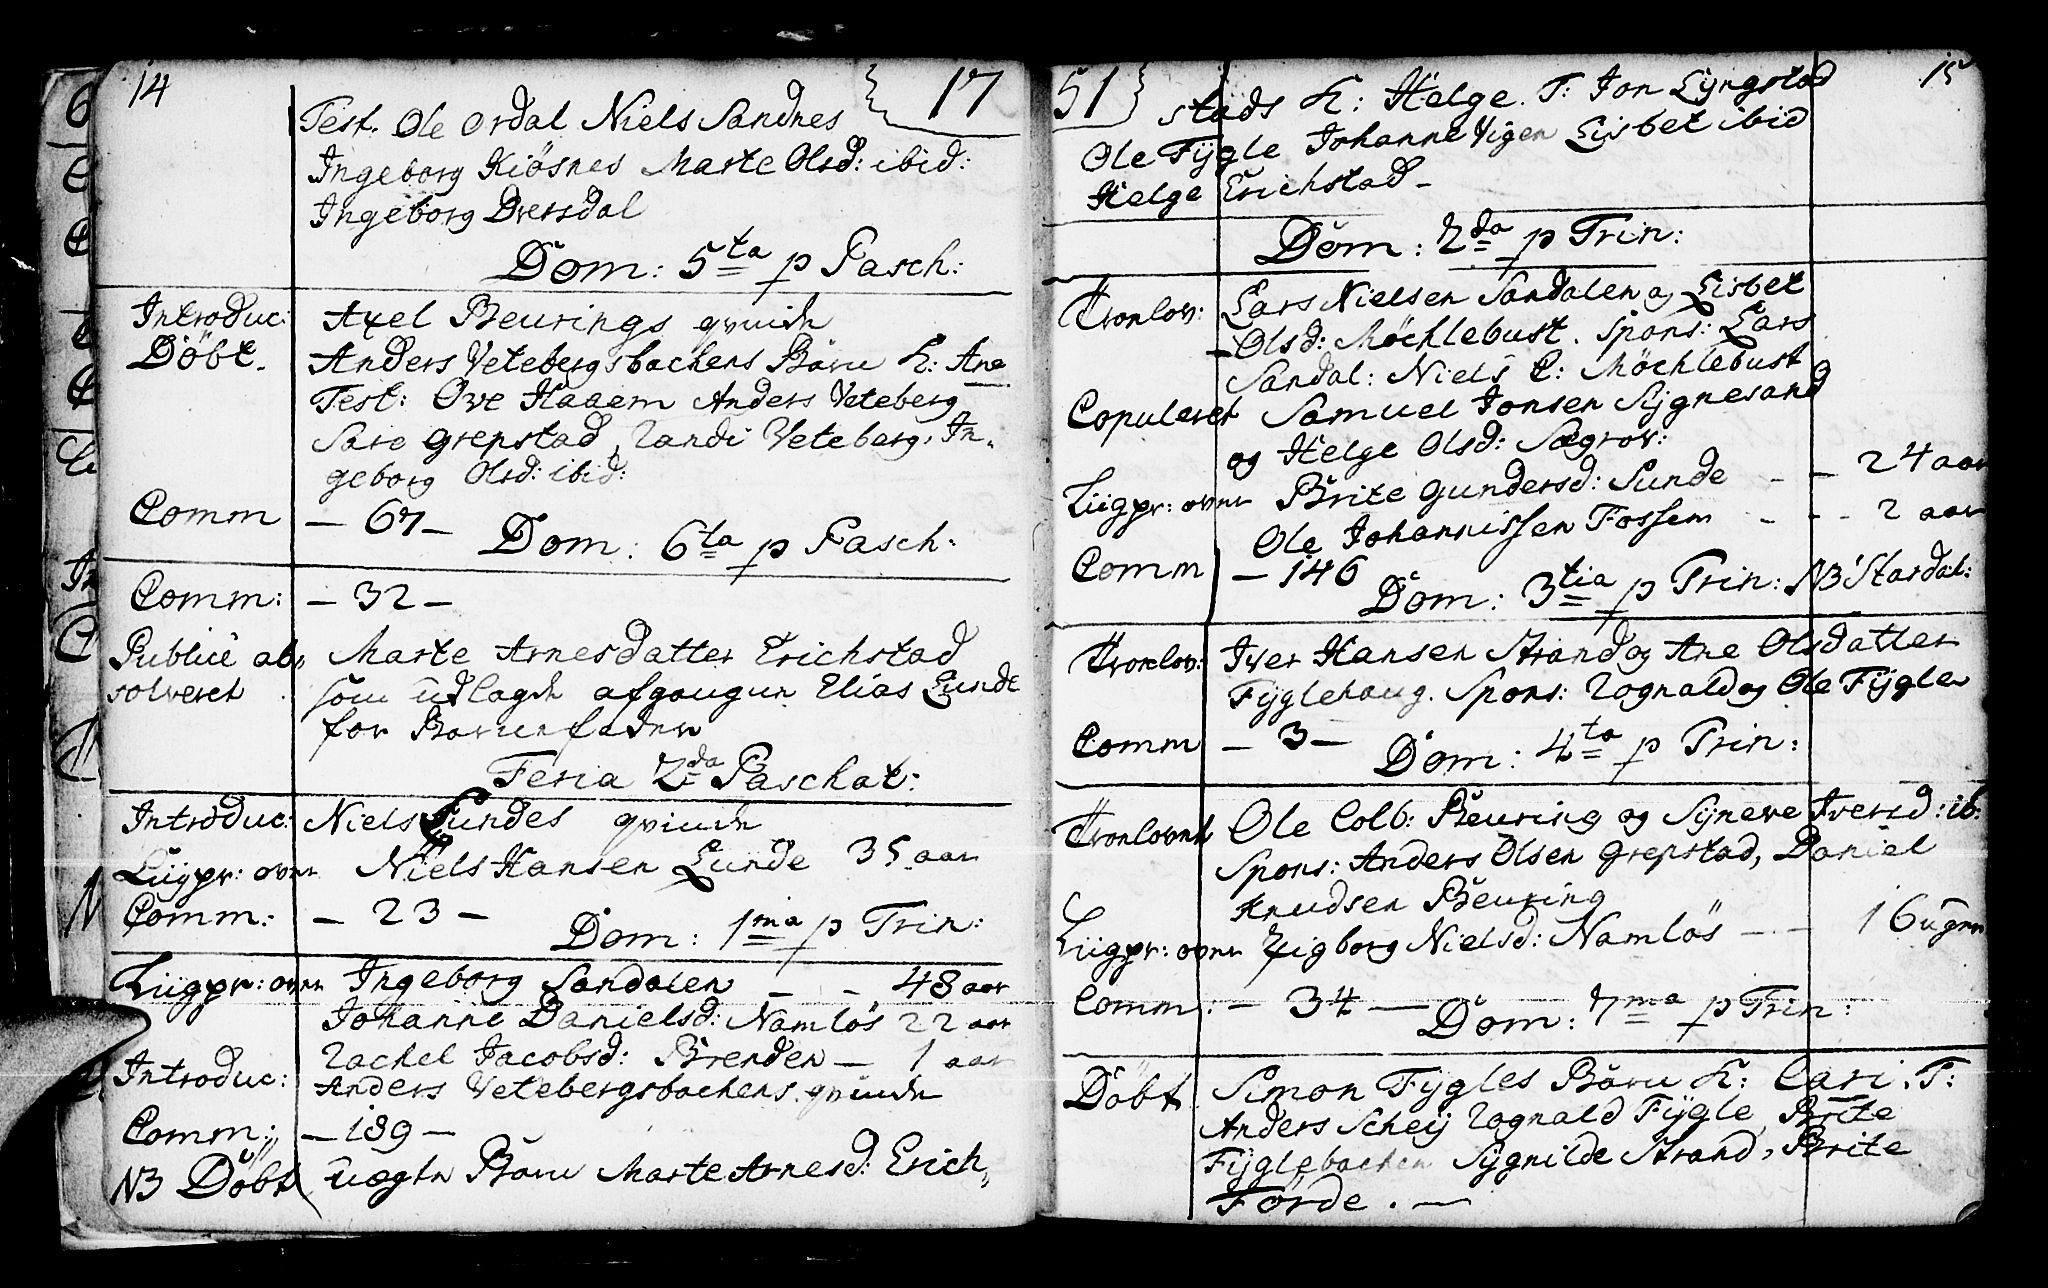 14 17
Test. Ole Ordal Niels Sandnes
Ingeborg Kiösnes Marte Olsd: ibid:
Ingeborg Dvergsdal
Dom: 5ta p Pasch:
Introduc: Axel Beurings qvinde
Döbt. Anders Vetebergsbachens Barn k: Ane
Test: Ove Haaem Anders Veteberg
Sare Grepstad, Randi Veteberg, In-
geborg Olsd: ibid:
Comm — 67 —
Dom: 6ta p Pasch:
Comm: — 32 —
Publicè ab- Marte Arnesdatter Erichstad
solveret som udlagde afgangne Elias Lunde
for Barnefader
Feria 2da Paschat:
Introduc: Niels Lundes qvinde
Liigpr: over Niels Hansen Lunde 35 aar
Comm: — 23 —
Dom: 1ma p Trin:
Liigpr: over Ingeborg Sandalen — - 48 aar
Johanne Danielsd: Namlös 22 aar
Rachel Jacobsd: Brenden — 1 aar
Introduc: Anders Vetebergsbachens qvinde
Comm: — 189 —
NB Döbt uægte Barn Marte Arnesd: Erich-
51 15
stads k: Helge. T: Jon Lyngstad
Ole Fygle Johanne Vigen Lisbet ibid
Helge Erichstad —
Dom: 2da p Trin:
Tronlov: Lars Nielsen Sandalen og Lisbet
Olsd: Möchlebust. Spons: Lars
Sandal: Niels E: Möchlebust
Copuleret Samuel Jonsen Sygnesand
og Helge Olsd: Sægrov:
Liigpr: over Brite Gundersd: Sunde - — 24 aar
Ole Johannissen Fossem - - - 2 aar
Comm — 146
Dom: 3tia p Trin: NB Stardal:
Tronlov: Iver Hansen Strand og Ane Olsdatter
Fyglehaug. Spons: Rognald og Ole Fygle
Comm — 3 —
Dom: 4ta p Trin:
Tronlovet Ole Colb: Beuring og Syneve Iversd: ib:
Spons: Anders Olsen Grepstad, Daniel
Knudsen Beuring
Liigpr: over Zigborg Nielsd: Namlös — - 16 uger
Comm: — 34 —
Dom: 7ma p Trin:
Döbt Simon Fygles Barn k: Cari. T:
Anders Scheij Rognald Fygle Brite
Fyglebachen Sygnilde Strand, Brite
Förde. —